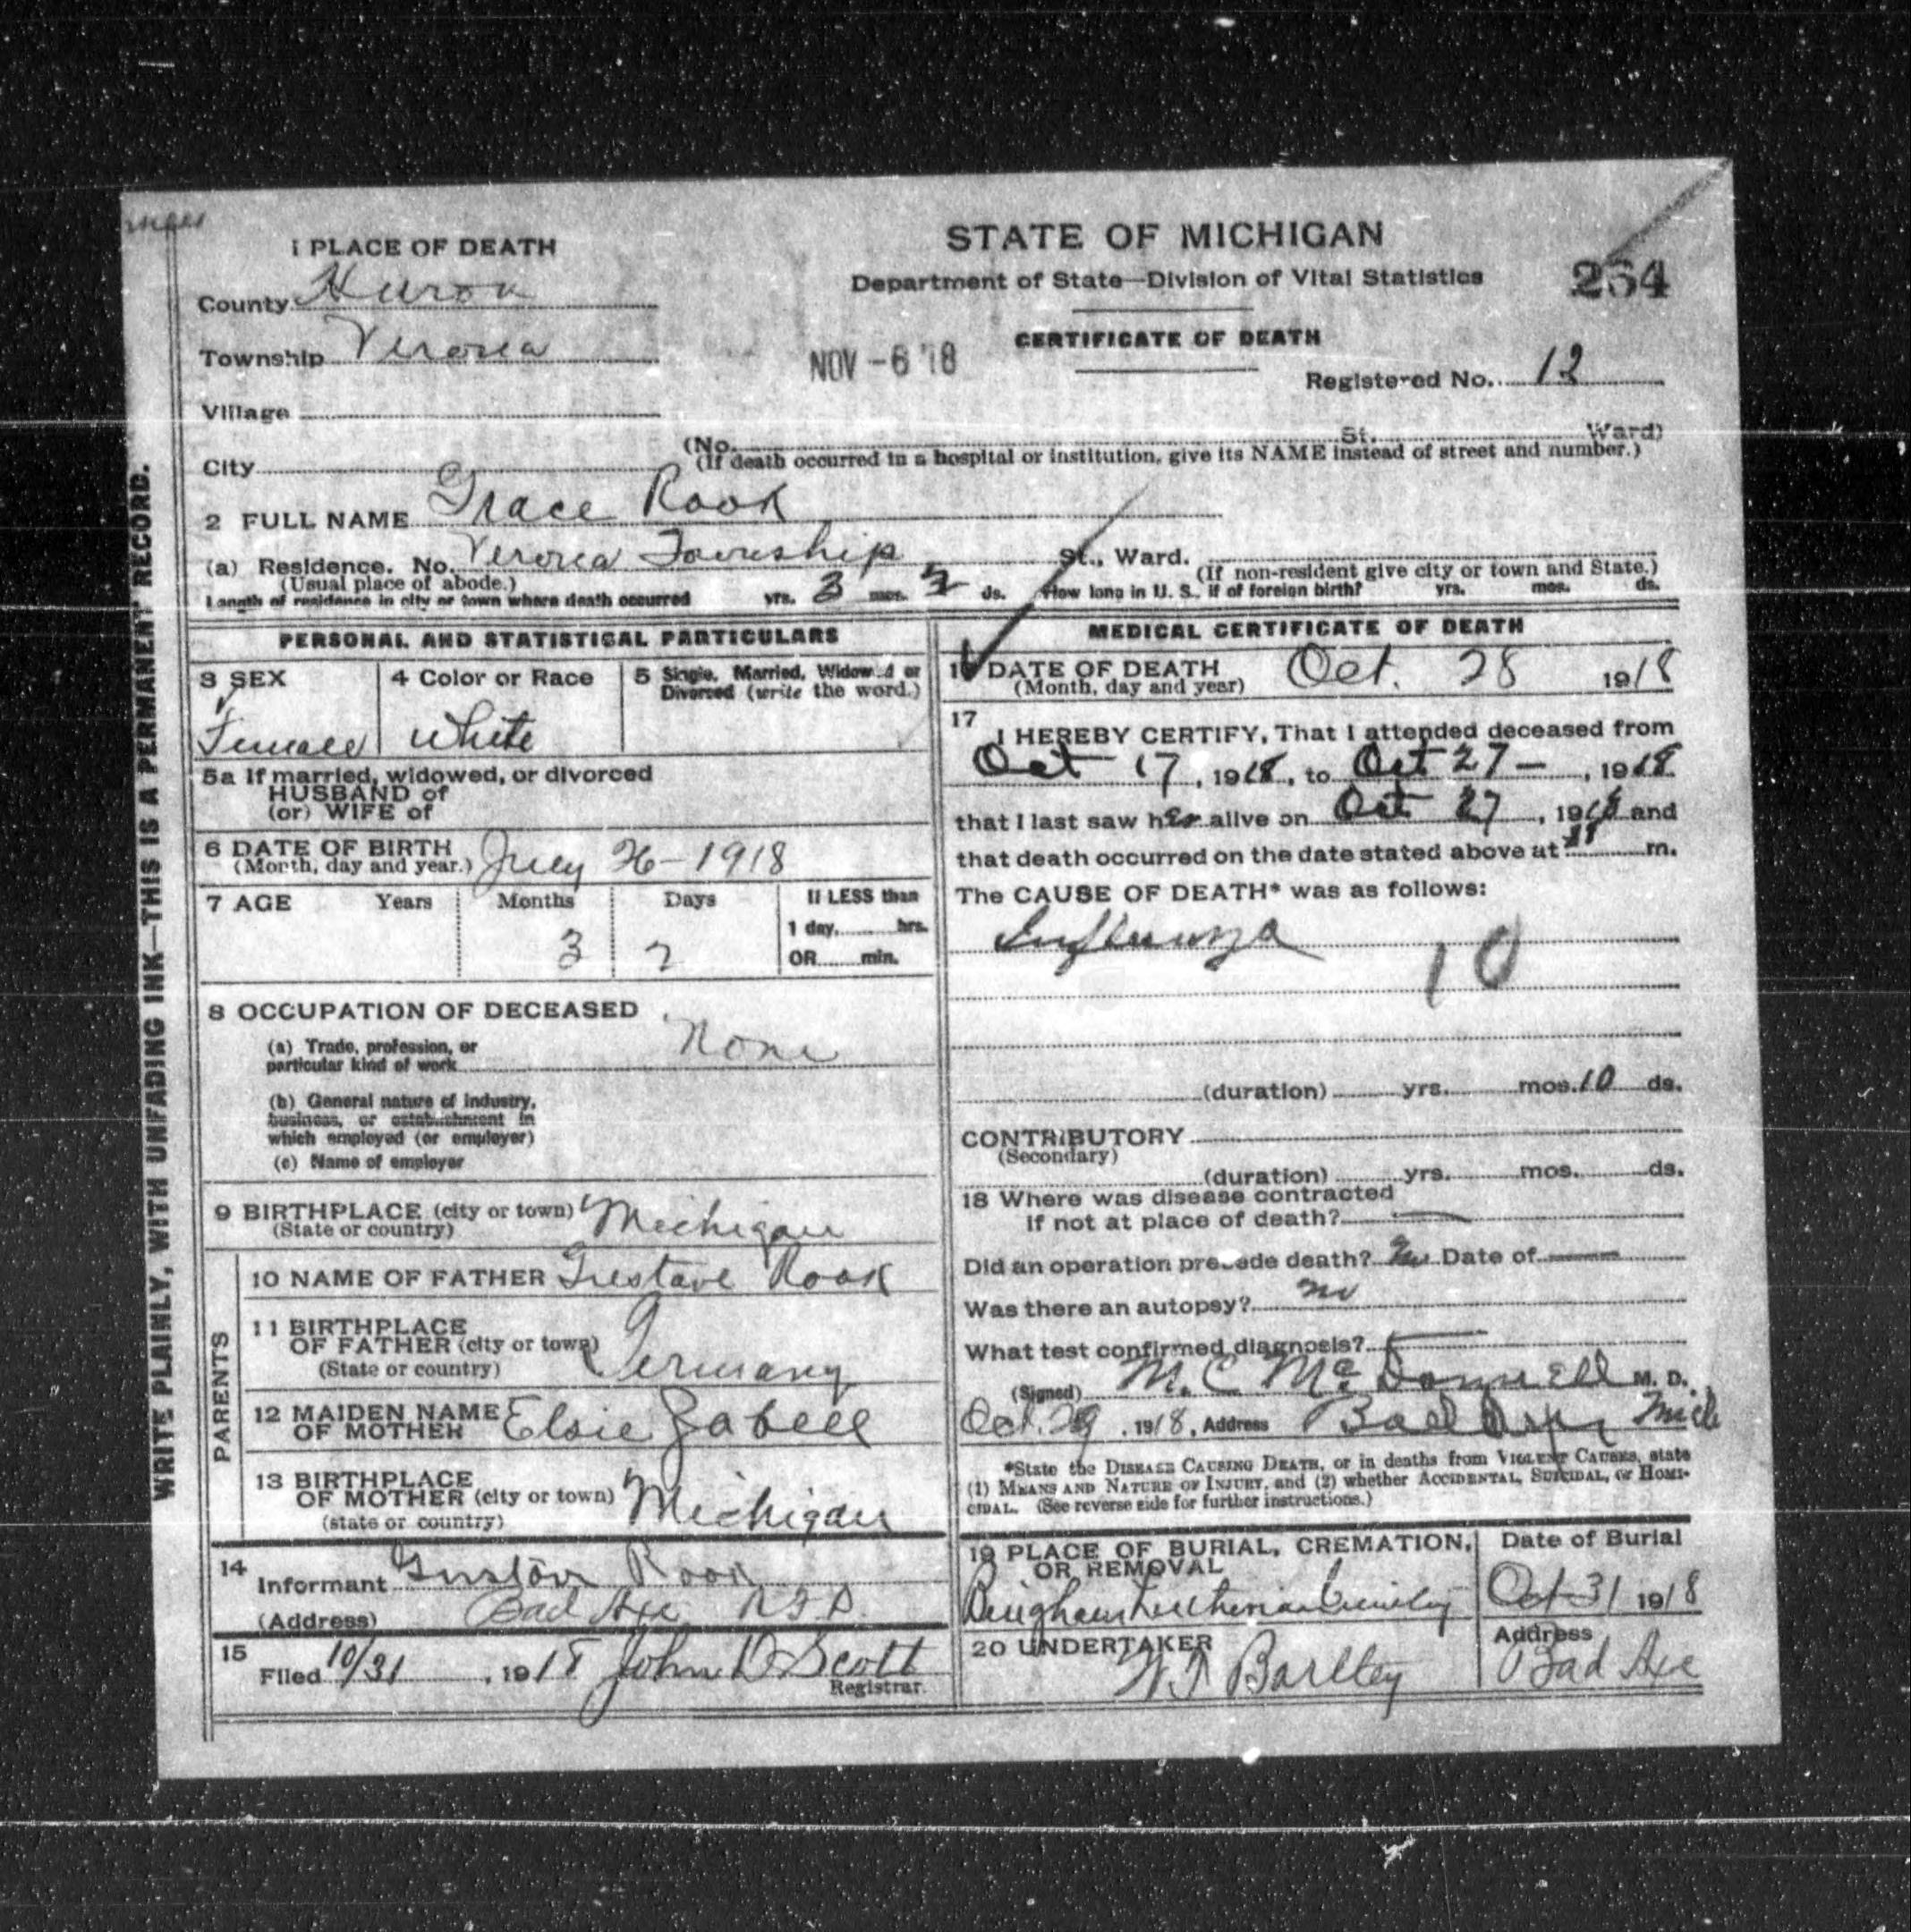 1 PLACE OF DEATH
County Huron
Township Verona
Village
City
STATE OF MICHIGAN
Department of State—Division of Vital Statistics
264
CERTIFICATE OF DEATH
NOV -6 '18
Registered No. 12
(No. St. Ward)
(If death occurred in a hospital or institution, give its NAME instead of street and number.)
2 FULL NAME Grace Rook
(a) Residence. No. Verona Township St., Ward.
(Usual place of abode.) (If non-resident give city or town and State.)
Length of residence in city or town where death occurred yrs. 3 mos. 2 ds. How long in U. S., if of foreign birth? yrs. mos. ds.
PERSONAL AND STATISTICAL PARTICULARS
3 SEX
Female
4 Color or Race
White
5 Single, Married, Widowed or
Divorced (write the word.)
5a If married, widowed, or divorced
HUSBAND of
(or) WIFE of
6 DATE OF BIRTH
(Month, day and year.) July 26-1918
7 AGE Years Months Days If LESS than
1 day, hrs.
3 2 OR min.
8 OCCUPATION OF DECEASED
(a) Trade, profession, or
particular kind of work None
(b) General nature of industry,
business, or establishment in
which employed (or employer)
(c) Name of employer
9 BIRTHPLACE (city or town) Michigan
(State or country)
PARENTS
10 NAME OF FATHER Gustave Rook
11 BIRTHPLACE
OF FATHER (city or town) Germany
(State or country)
12 MAIDEN NAME
OF MOTHER Elsie Zabell
13 BIRTHPLACE
OF MOTHER (city or town) Michigan
(state or country)
14
Informant Gustav Rook
(Address) Bad Axe R.F.D.
15
Filed 10/31, 1918 John D Scott
Registrar.
MEDICAL CERTIFICATE OF DEATH
16 DATE OF DEATH
(Month, day and year) Oct. 28 1918
17
I HEREBY CERTIFY, That I attended deceased from
Oct 17, 1918, to Oct 27 —, 1918
that I last saw her alive on Oct 27, 1918 and
that death occurred on the date stated above at m.
The CAUSE OF DEATH* was as follows:
Influenza
10
(duration) yrs. mos. 10 ds.
CONTRIBUTORY
(Secondary)
(duration) yrs. mos. ds.
18 Where was disease contracted
if not at place of death? —
Did an operation precede death? no Date of —
Was there an autopsy? no
What test confirmed diagnosis? —
(Signed) M. C. McDonnell M. D.
Oct. 29, 1918, Address Bad Axe Mich
*State the DISEASE CAUSING DEATH, or in deaths from VIOLENT CAUSES, state
(1) MEANS AND NATURE OF INJURY, and (2) whether ACCIDENTAL, SUICIDAL, or HOMI-
CIDAL. (See reverse side for further instructions.)
19 PLACE OF BURIAL, CREMATION,
OR REMOVAL
Bingham Lutheran Cemetery
Date of Burial
Oct 31 1918
20 UNDERTAKER
Address
Bad Axe
WRITE PLAINLY, WITH UNFADING INK—THIS IS A PERMANENT RECORD.